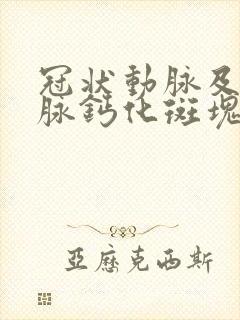 冠狀動脈及
脈鈣化斑塊
亞歷克西斯